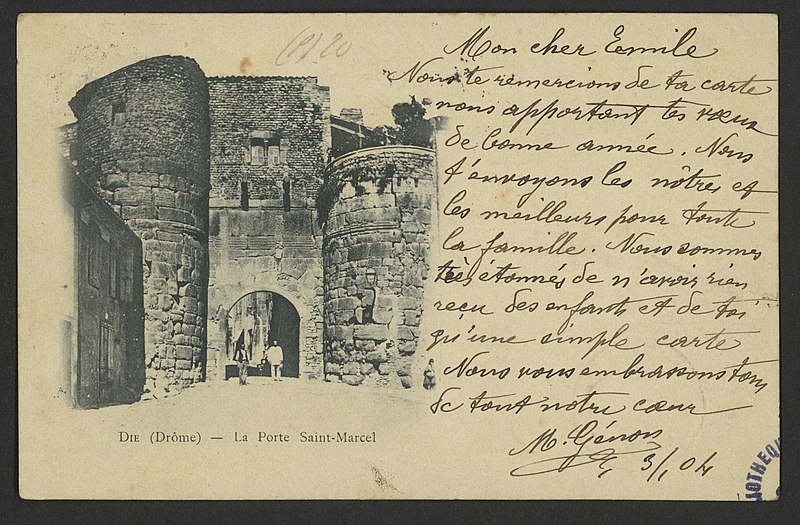 Mon cher Emile
Nous te remercions de ta carte
nous apportant tes vœux
de bonne année. Nous
t'envoyons les nôtres et
les meilleurs pour toute
la famille. Nous sommes
très étonnés de n'avoir rien
reçu des enfants et de toi
qu'une simple carte
Nous vous embrassons tous
de tout notre cœur
3/1 04
DIE (Drôme) — La Porte Saint-Marcel
IOTHEQU